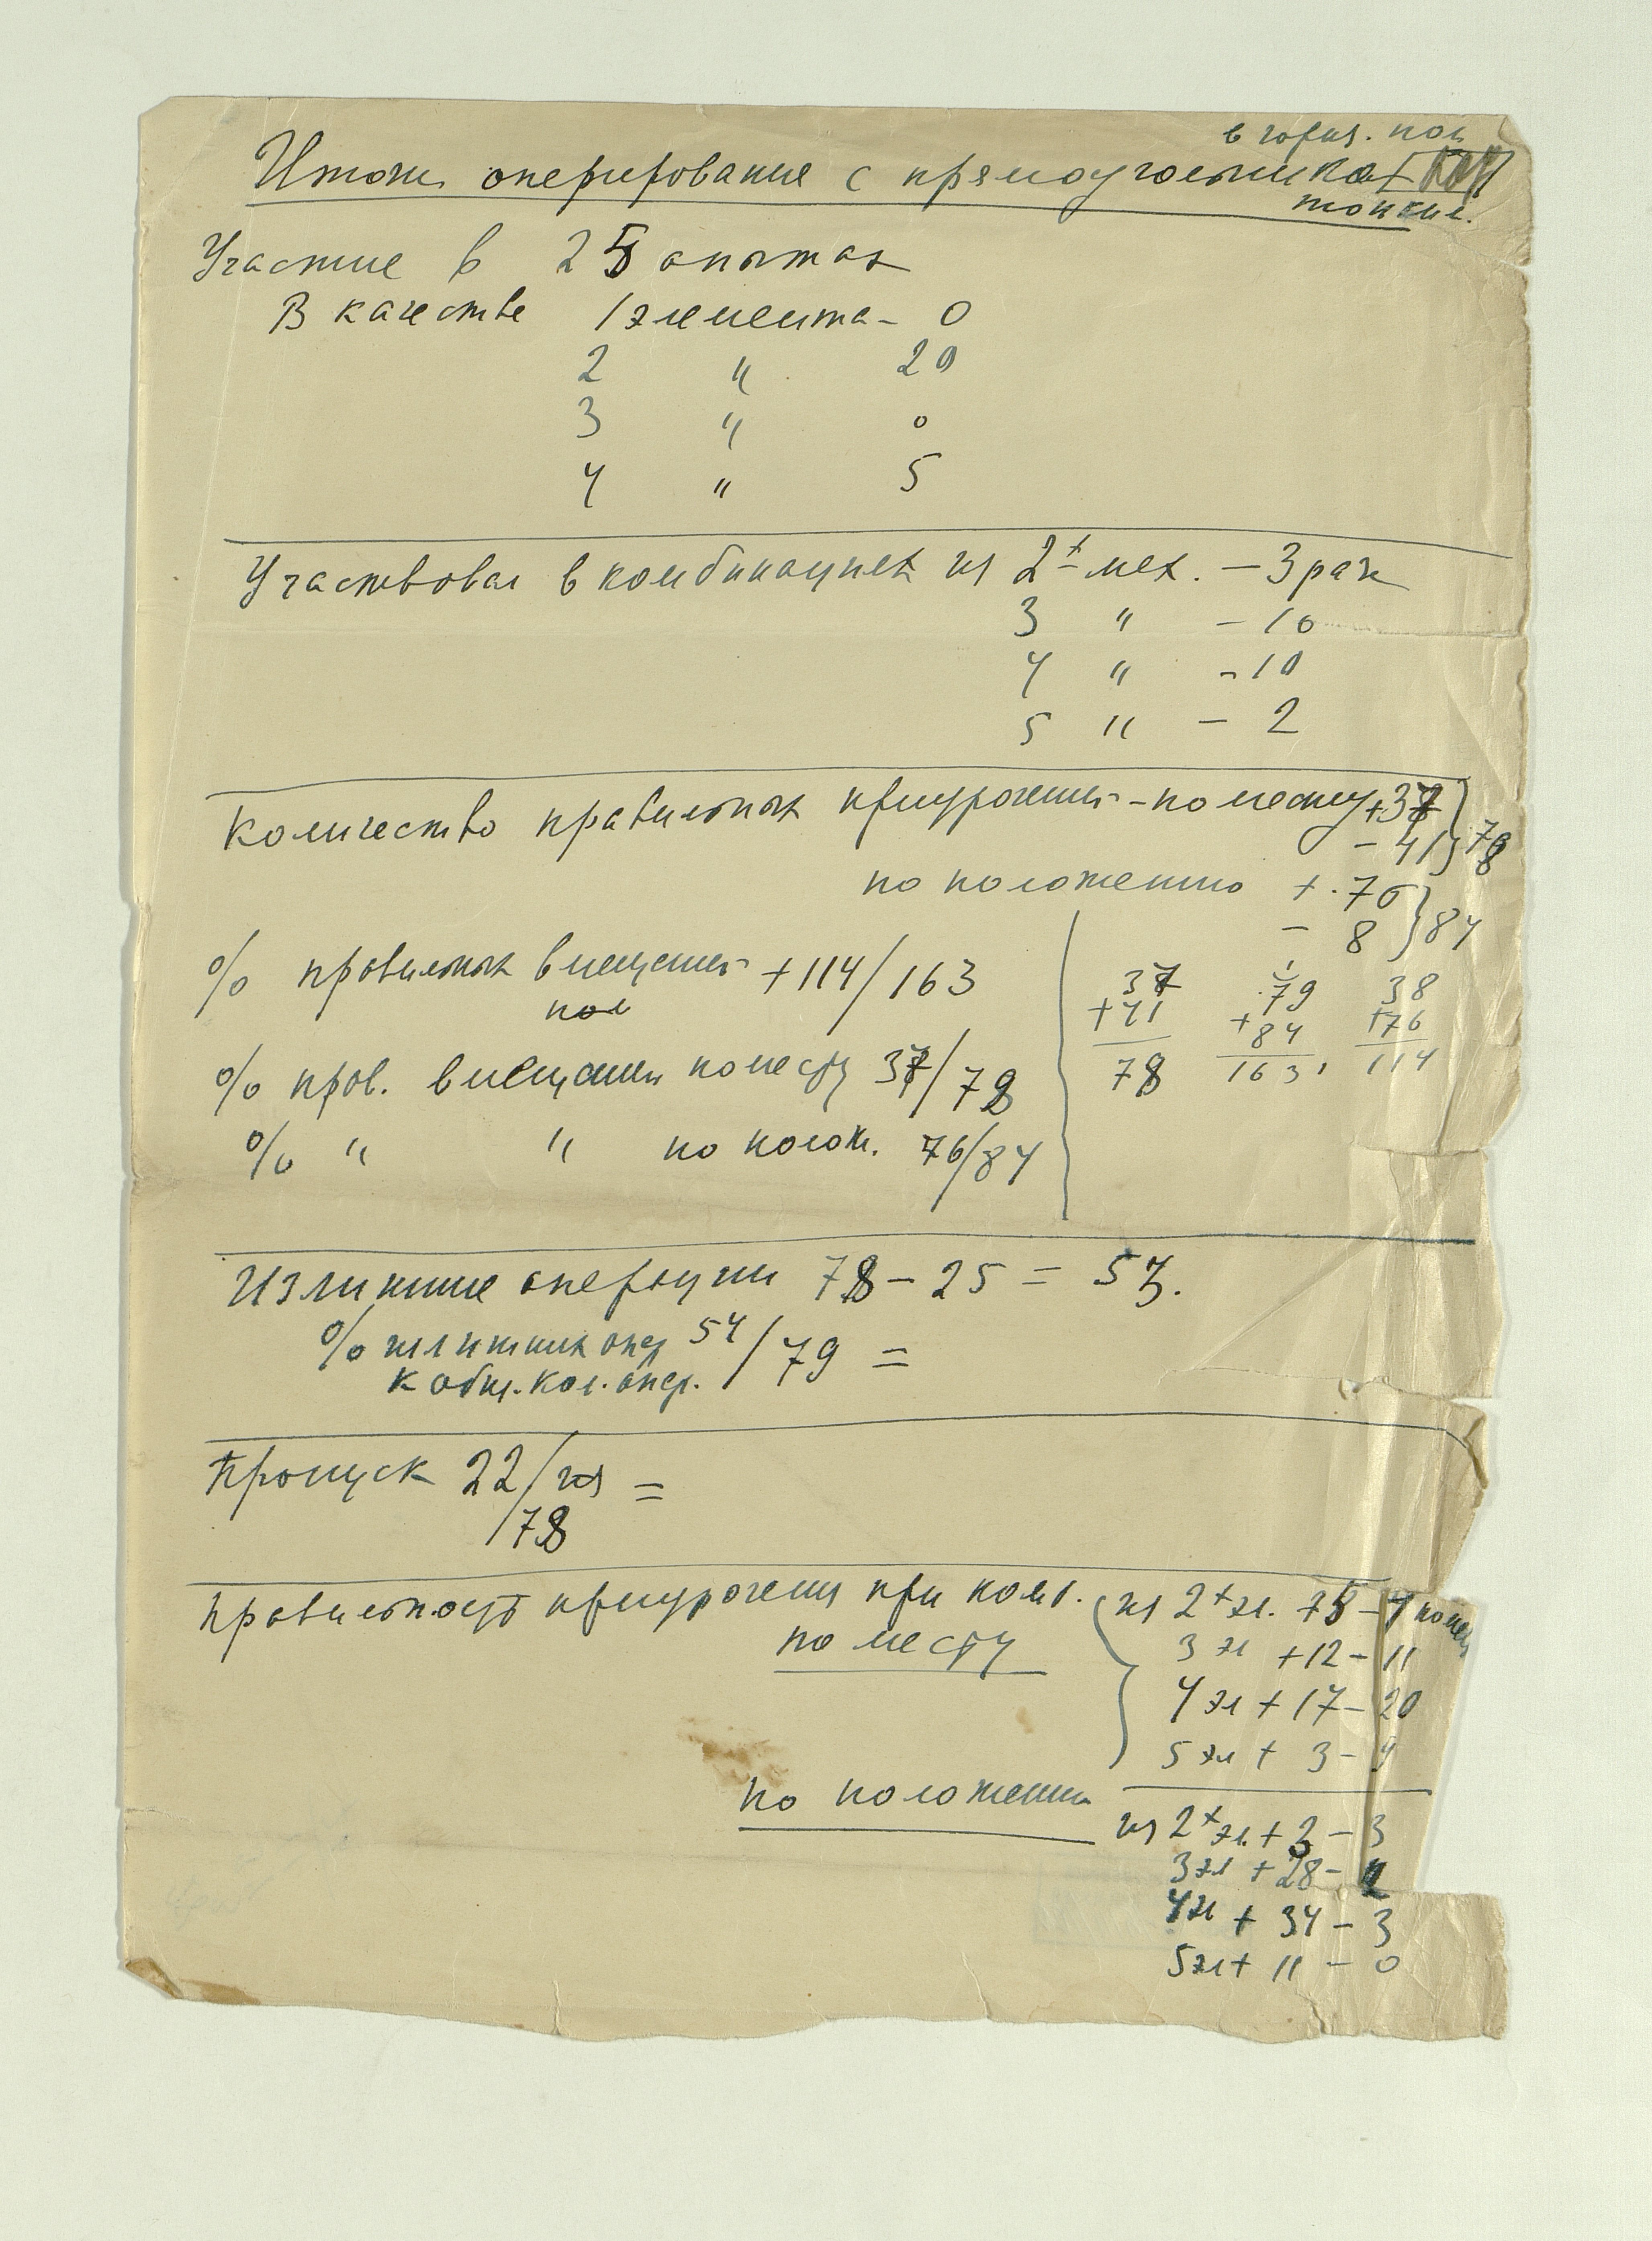 в гориз. пол.
Итоги оперирования с прямоугольника
тонкие.
Участие в 25 опытах
В качестве 1 элемента - 0
2 " 20
3 " 0
4 " 5
Участвовал в комбинациях из 2х мех. - 3 раза
3 " - 10
4 " - 10
5 " - 2
Количество правильных приурочений - по месту + 37
- 41 } 78
по положению + 76
- 8 } 84
% правильных вмещений + 114/163
пол
% прав. вмещений по месту 37/78
% " " по полож. 76/84
37 79 38
+41 +84 +76
78 163 114
Излишние операции 78 - 25 = 53.
% излишних опер 54/79 =
к общ. кол. опер.
Пропуск 22/из =
78
Правильность приурочения при комб.
по месту
из 2х эл. +5 - 7
3 эл +12 - 11
4 эл + 17 - 20
5 эл + 3 -
по положению
из 2х эл. + 3 - 3
3 эл + 28 - 2
4 эл + 34 - 3
5 эл + 11 - 0